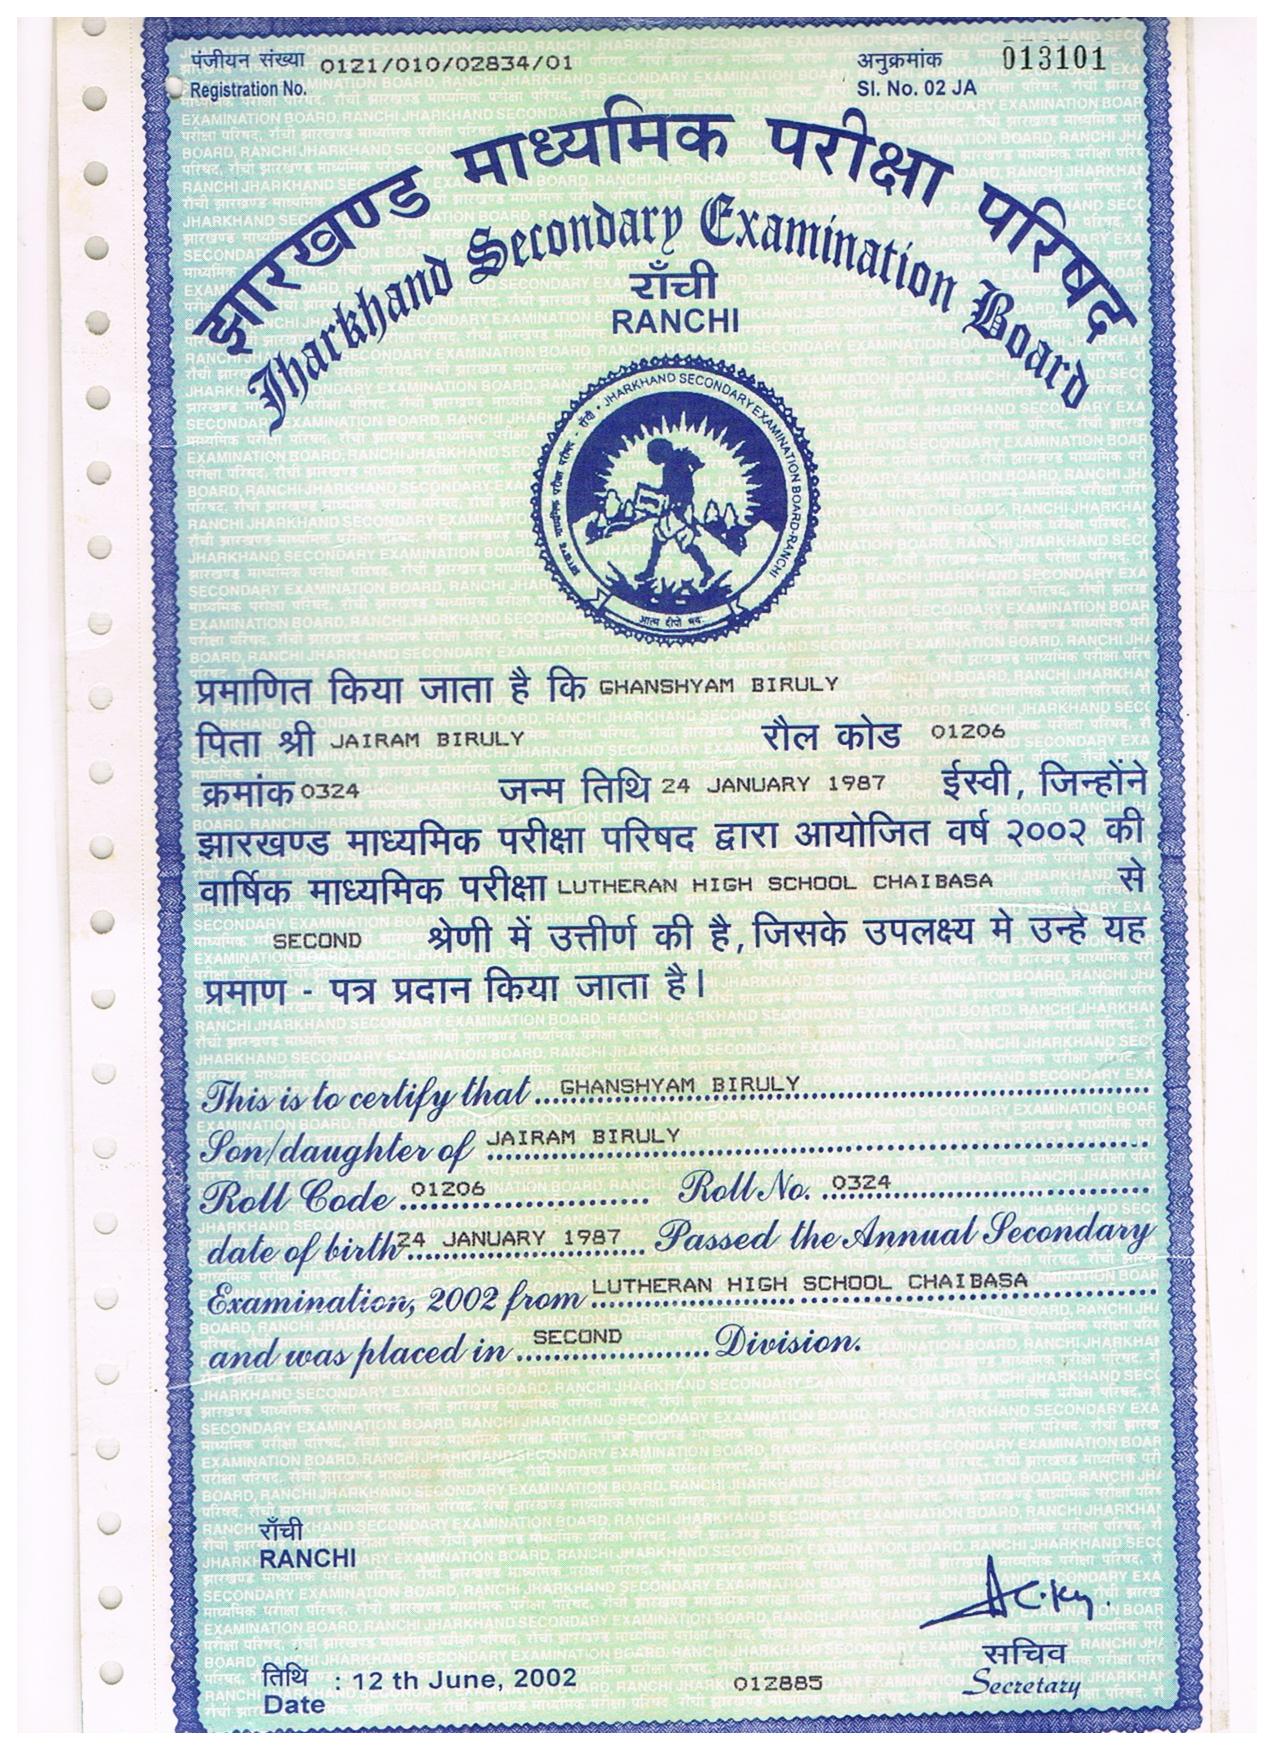 पंजीयन संख्या 0121/010/02834/01
Registration No.
अनुक्रमांक 013101
Sl. No. 02 JA
झारखण्ड माध्यमिक परीक्षा परिषद
Jharkhand Secondary Examination Board
राँची
RANCHI
झारखण्ड माध्यमिक परीक्षा परिषद - राँची • JHARKHAND SECONDARY EXAMINATION BOARD-RANCHI
आत्म दीपो भवः
प्रमाणित किया जाता है कि GHANSHYAM BIRULY
पिता श्री JAIRAM BIRULY रौल कोड 01206
क्रमांक 0324 जन्म तिथि 24 JANUARY 1987 ईस्वी, जिन्होंने
झारखण्ड माध्यमिक परीक्षा परिषद द्वारा आयोजित वर्ष २००२ की
वार्षिक माध्यमिक परीक्षा LUTHERAN HIGH SCHOOL CHAIBASA से
SECOND श्रेणी में उत्तीर्ण की है, जिसके उपलक्ष्य मे उन्हे यह
प्रमाण - पत्र प्रदान किया जाता है।
This is to certify that GHANSHYAM BIRULY
Son/daughter of JAIRAM BIRULY
Roll Code 01206 Roll No. 0324
date of birth 24 JANUARY 1987 Passed the Annual Secondary
Examination, 2002 from LUTHERAN HIGH SCHOOL CHAIBASA
and was placed in SECOND Division.
राँची
RANCHI
सचिव
तिथि : 12 th June, 2002 012885 Secretary
Date